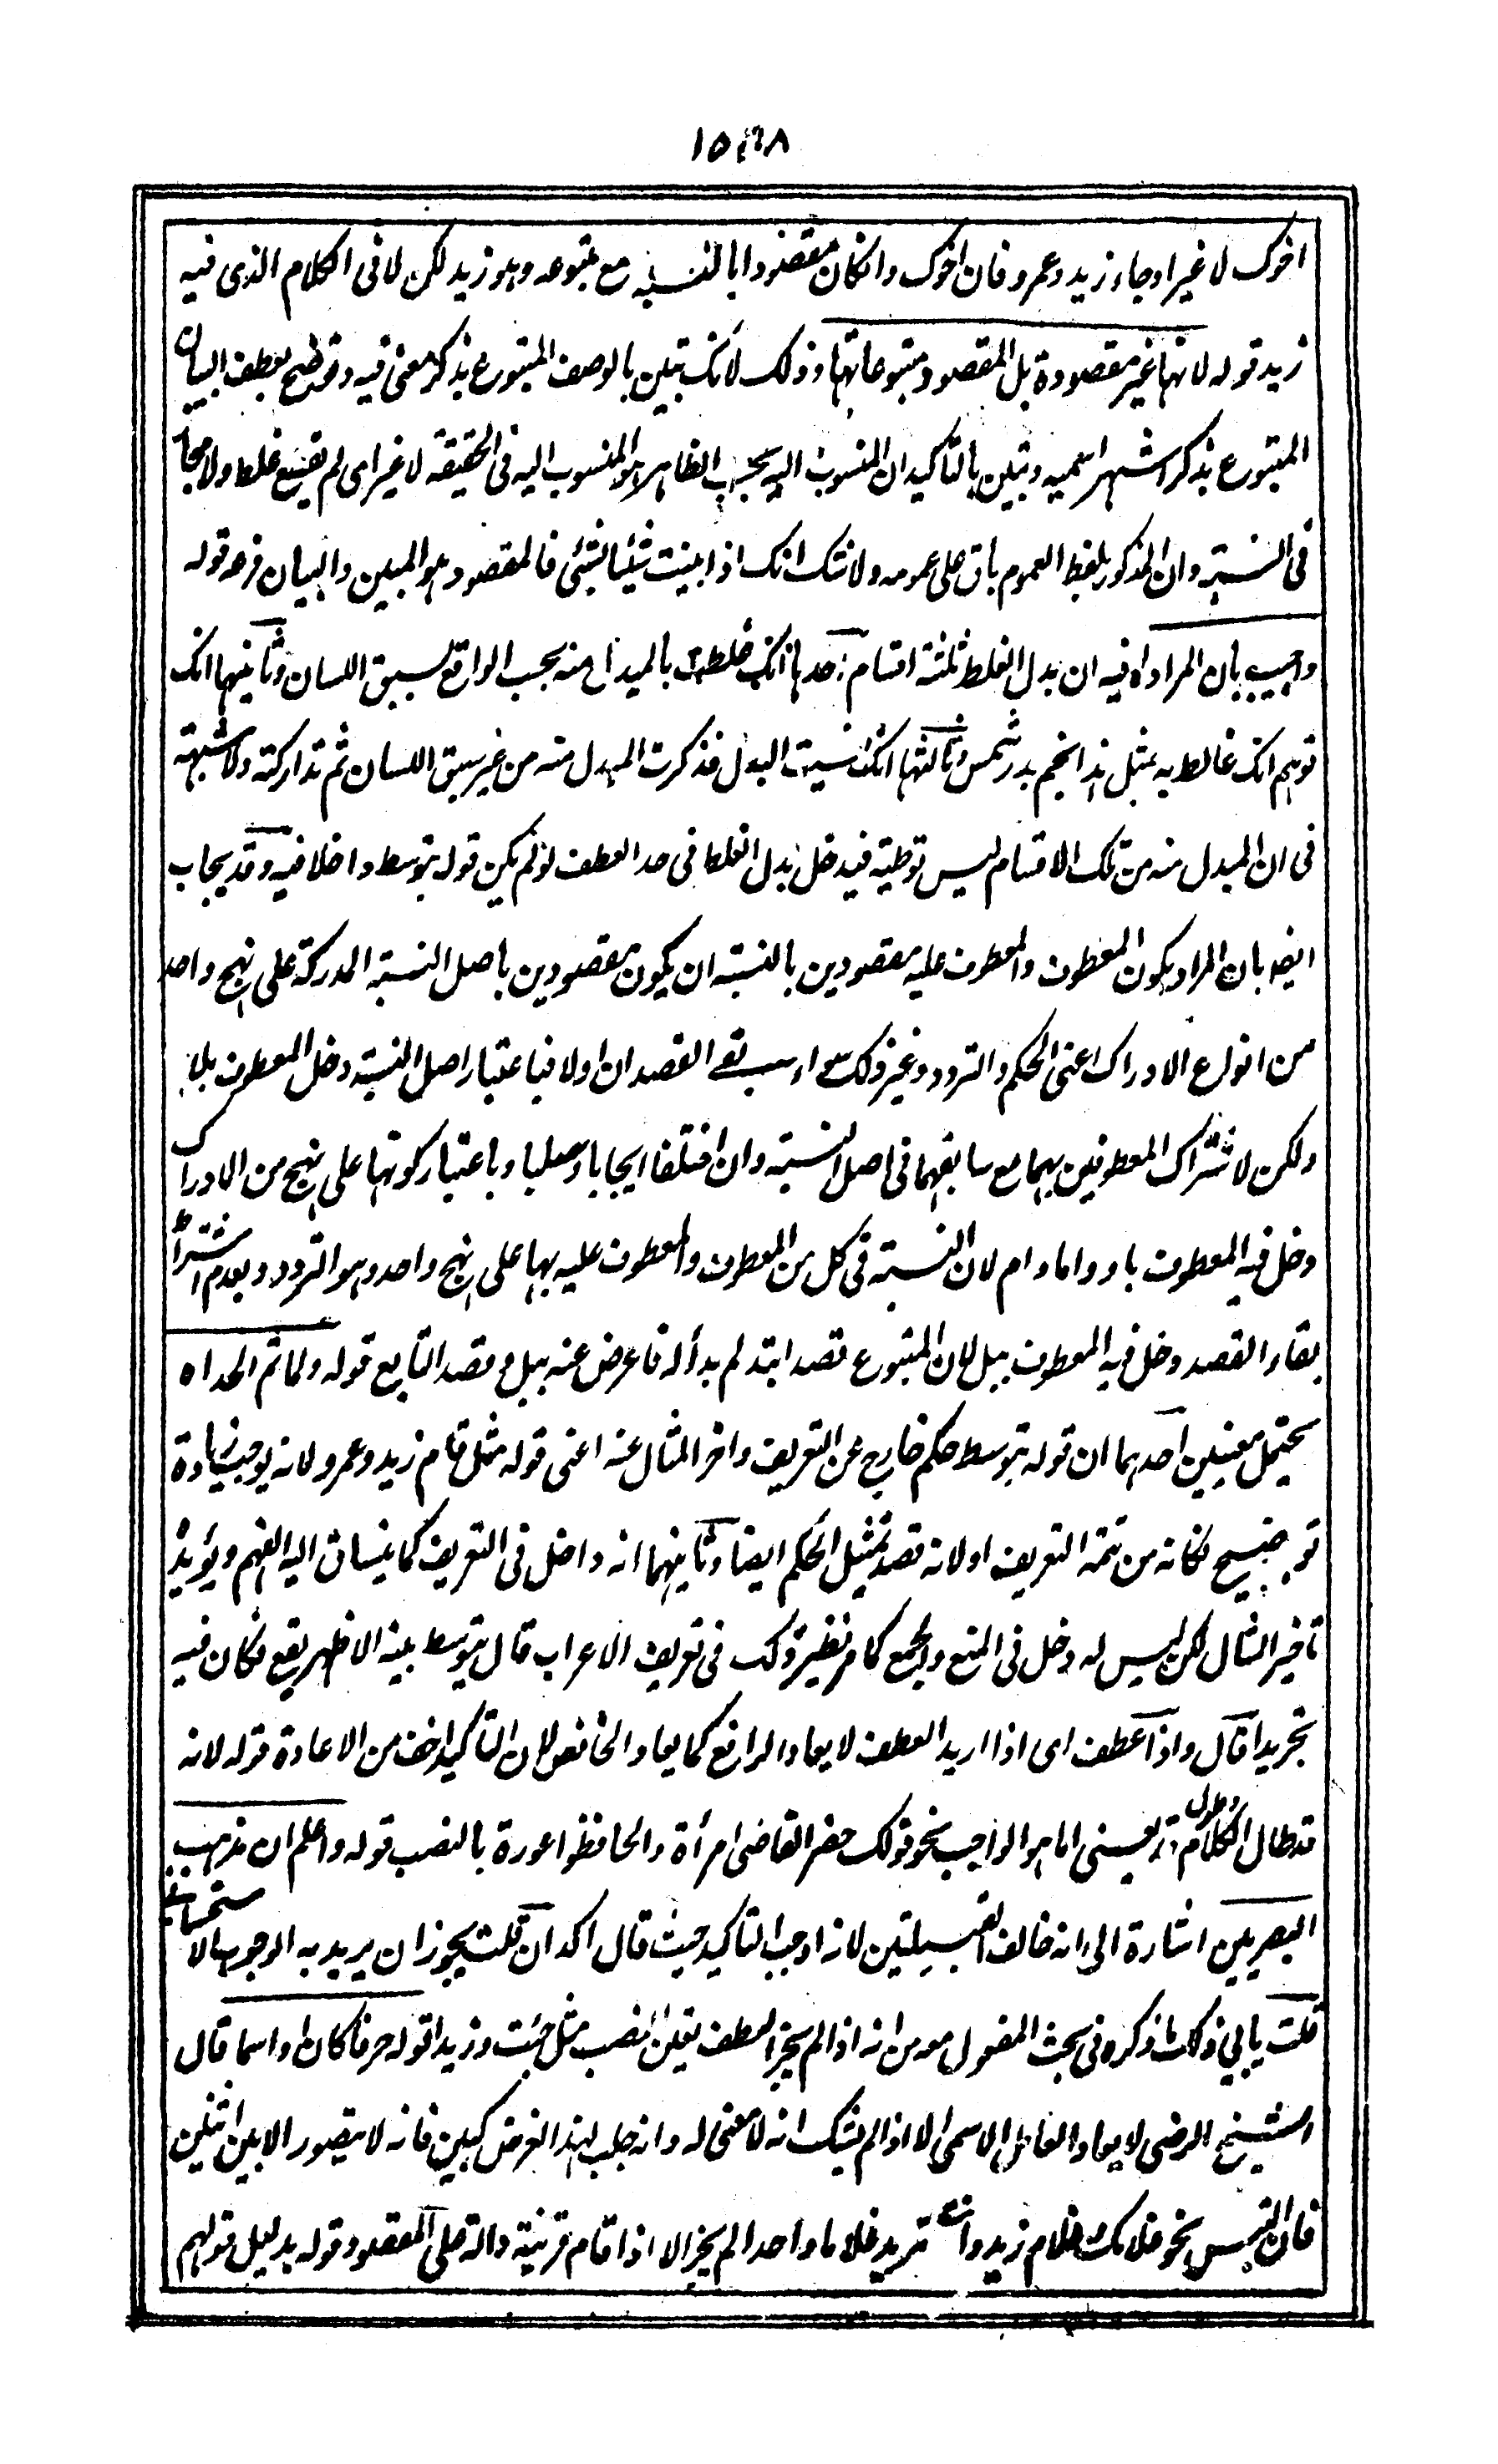 اخوك لا غير او جاء زيد وعمرو فان اخوك وانكان مقصودا بالنسبة مع متبوعه وهو زيد لكن لا فى الكلام الذى فيه
زيد قوله لانها غير مقصودة بل المقصود متبوعاتها وذلك لأنك تبين بالوصف المتبوع بذكر معنى فيه وتوضح بعطف البيان
المتبوع بذكر اشهر اسميه وتبين بالتاكيد ان المنسوب اليه بحسب الظاهر هو المنسوب اليه فى الحقيقة لا غير اى لم يقع غلط ولا مجاز
فى النسبة وان المذكور بلفظ العموم باق على عمومه ولا شك انك اذا بينت شيئا بشئ فالمقصود هو المبين والبيان فرعه قوله
واجيب بان المراد اه فيه ان بدل الغلط ثلثة اقسام احدها انك غلطت بالمبدل منه بحسب الواقع لسبق اللسان وثانيها انك
توهم انك غالط به مثل هذا نجم بدر شمس وثالثها انك نسيت البدل فذكرت المبدل منه من غير سبق اللسان ثم تداركته ولا شبهة
فى ان المبدل منه من تلك الاقسام ليس توطية فيدخل بدل الغلط فى حد العطف لو لم يكن قوله بتوسط داخلا فيه وقد يجاب
ايضا بان المراد بكون المعطوف والمعطوف عليه مقصودين بالنسبة ان يكون مقصودين باصل النسبة المدركة على نهج واحد
من انواع الادراك اعنى الحكم والتردد وغير ذلك سواء بقى القصد ان اولا فباعتبار اصل النسبة دخل المعطوف بلا
ولكن لاشتراك المعطوفين بهما مع سابقهما فى اصل النسبة وان اختلفا ايجابا وسلبا وباعتبار كونها على نهج من الادراك
دخل فيه المعطوف باو واما وام لان النسبة فى كل من المعطوف والمعطوف عليه بها على نهج واحد وهو التردد وبعدم اشتراط
بقاء القصد دخل فيه المعطوف ببل لان المتبوع قصد ابتداء ثم بدأ له فاعرض عنه ببل وقصد التابع قوله ولما تم الحد اه
يحتمل معنيين احدهما ان قوله بتوسط حكم خارج عن التعريف واخر المثال عنه اعنى قوله مثل قام زيد وعمرو لانه يوجب زيادة
توضيح فكانه من تتمة التعريف او لانه قصد تمثيل الحكم ايضا وثانيهما انه داخل فى التعريف كما ينساق اليه الفهم ويؤيده
تاخير المثال لكن ليس له دخل فى المنع والجمع كما مر نظير ذلك فى تعريف الاعراب قال يتوسط بينه الاظهر يقع فكان فيه
تجريدا قال واذا عطف اى اذا اريد العطف لا يعاد الرافع كما يعاد الخافض لان التاكيد اخف من الاعادة قوله لانه
قد طال الكلام وطول اه يعنى اما هو الواجب نحو قولك حضر القاضى امرأة والحافظو اعورة بالنصب قوله واعلم ان مذهب
البصريين اشارة الى انه خالف القبيلتين لانه اوجب التاكيد حيث قال اكد ان قلت يجوز ان يريد به الوجوب الاستحسانى
قلت يابى ذلك ما ذكره فى بحث المفعول معه من انه اذا لم يجز العطف تعين النصب مثل جئت وزيدا قوله حرفا كان او اسما قال
الشيخ الرضى لا يعاد العامل الاسمى الا اذا لم يشك انه لا معنى له وانه جلب لهذا الغرض كبين فانه لا يتصور الا بين اثنين
فان التبس نحو غلامك وغلام زيد وانت تريد غلاما واحدا لم يجز الا اذا قام قرينة دالة على المقصود قوله بدليل قولهم